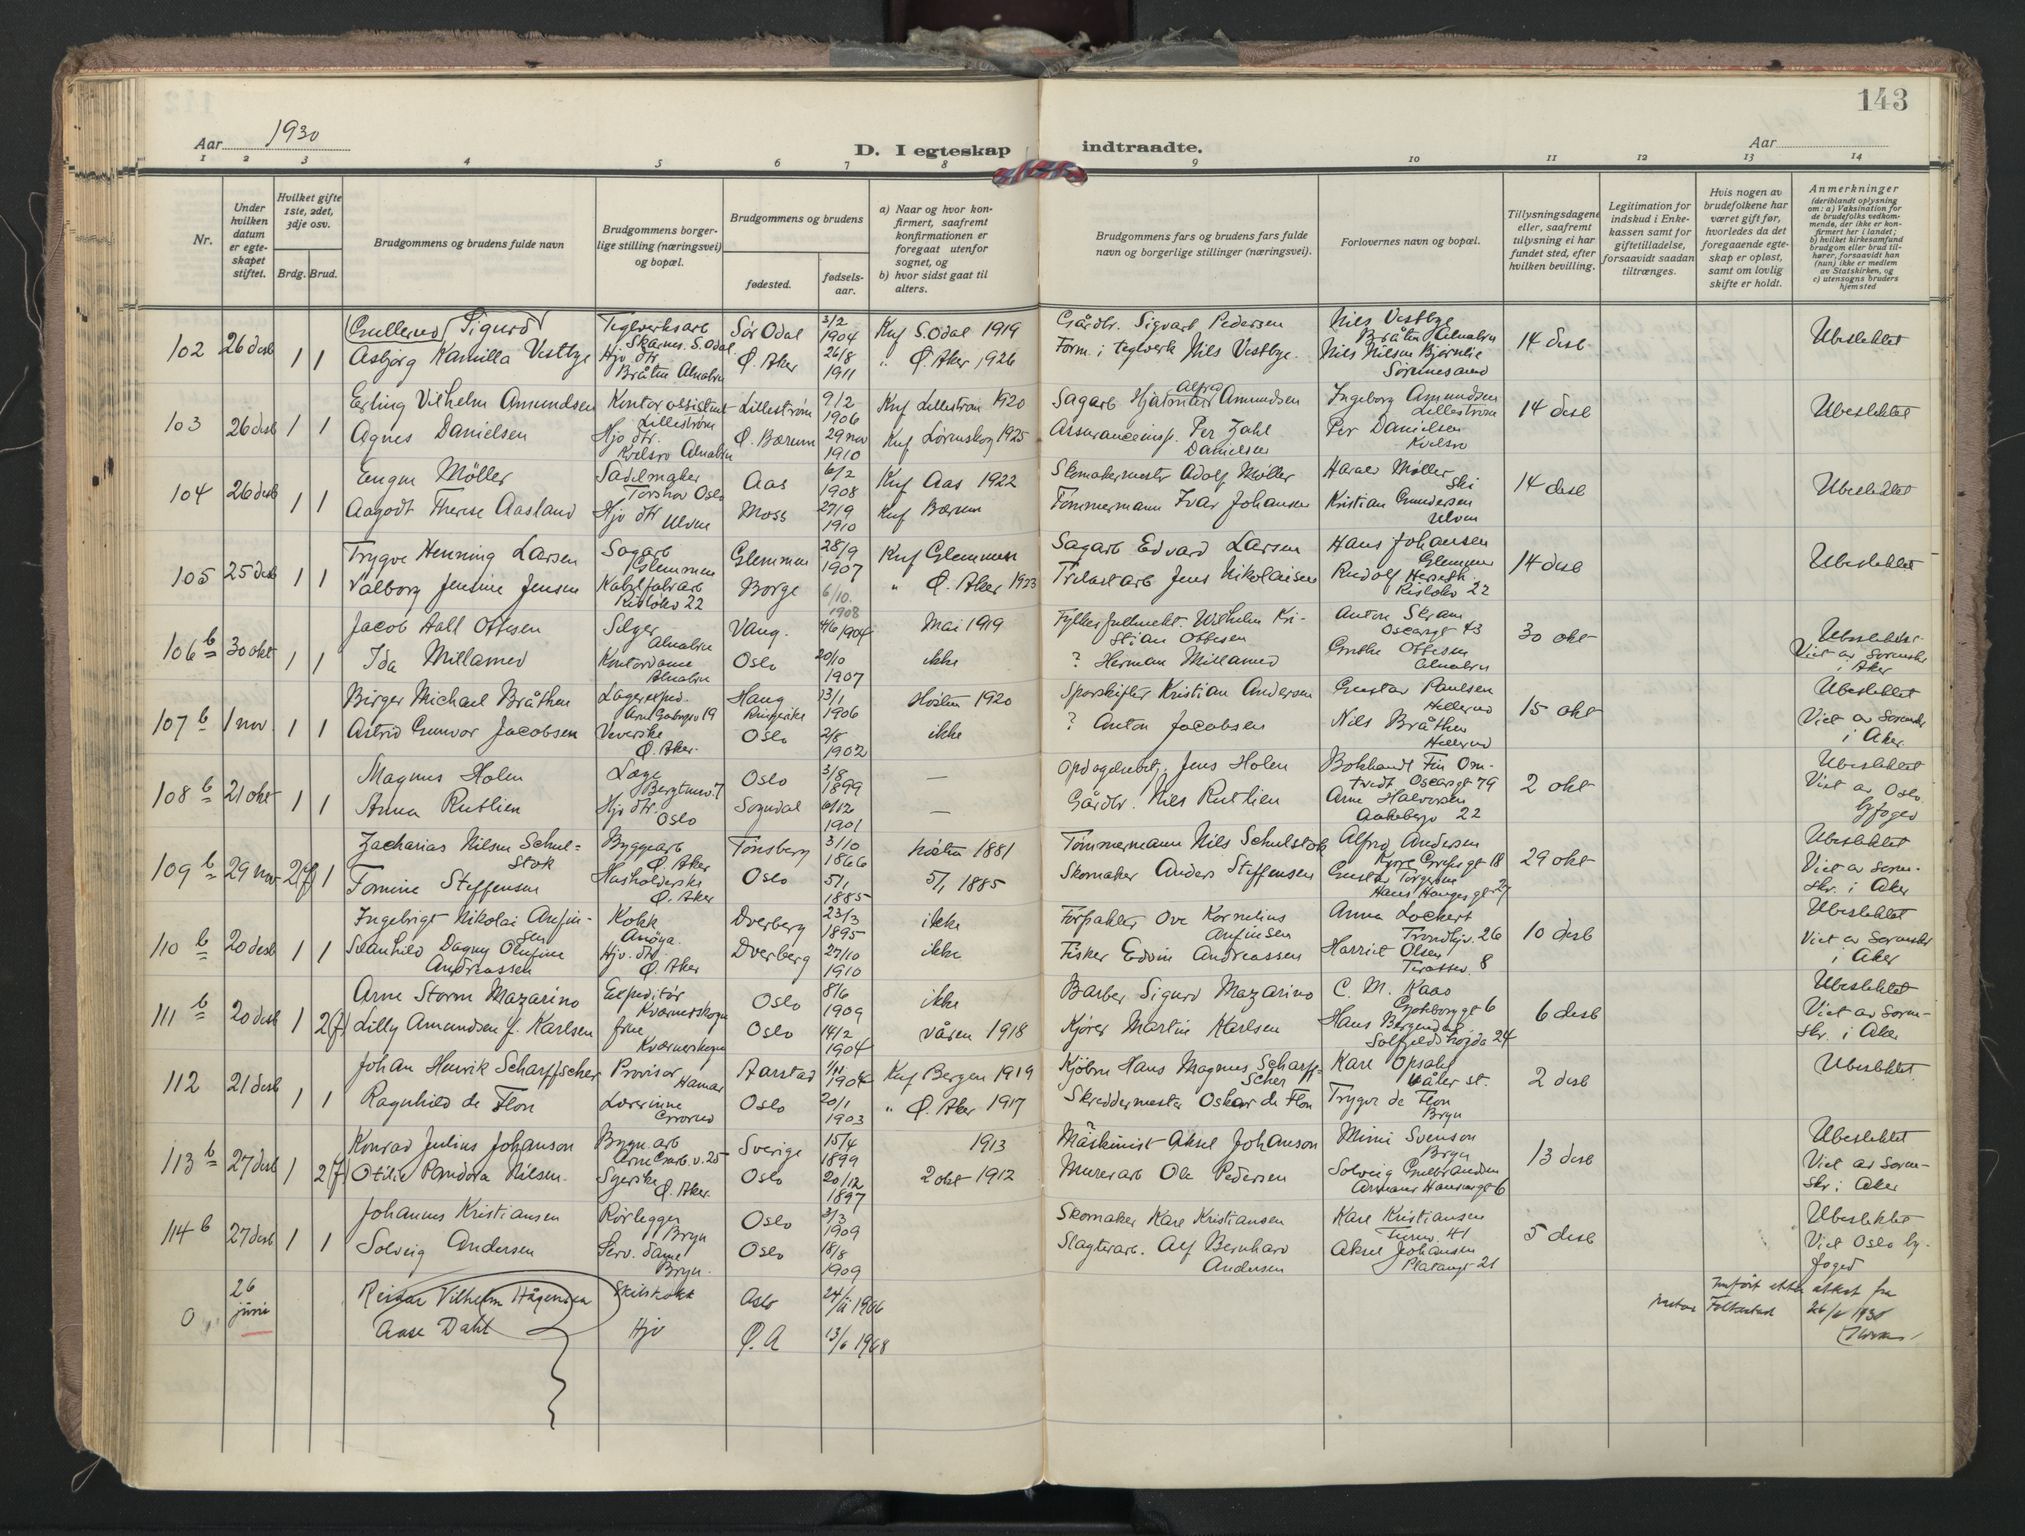 143
Aar 1930
D. I egteskap indtraadte.
Aar
1 2 3 4 5 6 7 8 9 10 11 12 13 14
Nr.
Under hvilken datum er egteskapet stiftet.
Hvilket gifte 1ste, 2det, 3dje osv.
Brdg. Brud.
Brudgommens og brudens fulde navn
Brudgommens borgerlige stilling (næringsvei) og bopæl.
Brudgommens og brudens
fødested.
fødselsaar.
a) Naar og hvor konfirmert, saafremt konfirmationen er foregaat utenfor sognet, og
b) hvor sidst gaat til alters.
Brudgommens fars og brudens fars fulde navn og borgerlige stillinger (næringsvei).
Forlovernes navn og bopæl.
Tillysningsdagene eller, saafremt tillysning ei har fundet sted, efter hvilken bevilling.
Legitimation for indskud i Enkekassen samt for giftetilladelse, forsaavidt saadan tiltrænges.
Hvis nogen av brudefolkene har været gift før, hvorledes da det foregaaende egteskap er opløst, samt om lovlig skifte er holdt.
Anmerkninger (deriblandt oplysning om: a) Vaksination for de brudefolks vedkommende, der ikke er konfirmert her i landet; b) hvilket kirkesamfund brudgom eller brud tilhører, forsaavidt han (hun) ikke er medlem av Statskirken, og c) utensogns bruders hjemsted
102 26 desb 1 1 Gullerud Sigurd Teglverksarb Skarnes. S. Odal. Sør Odal 3/2 1904 Knf S. Odal 1919 Gårdbr. Sigvart Pedersen Nils Vestbye Bråten Alnabru 14 desb Ubeslektet
Asbjørg Kamilla Vestbye Hjv dtr. Bråten Alnabru Ø. Aker 26/8 1911 " Ø. Aker 1926 Form. i teglverk Nils Vestbye. Nils Nilsen Bjørnlie
103 26 desb 1 1 Erling Vilhelm Amundsen Kontorassistent Lillestrøm Lillestrøm 9/2 1906 Knf Lillestrøm 1920 Sagarb Hjalmar Alfred Amundsen Ingeborg Amundsen Lillestrøm 14 desb Ubeslektet
Agnes Danielsen Hjv dtr. Kvilsro Alnabru Ø. Bærum 29 nov 1910 Knf Lørenskog 1925 Assuranceinsp. Per Zahl Danielsen Per Danielsen Kvilsro
104 26 desb 1 1 Eugen Møller Sadelmaker Torshov Oslo Aas 6/2 1908 Knf Aas 1922 Skomakermester Adolf Møller Harald Møller Ski 14 desb Ubeslektet
Aagodt Therese Aasland Hjv dtr Ulven Moss 27/9 1910 Knf Bærum Tømmermann Ivar Johansen Kristian Gundersen Ulven
105 25 desb 1 1 Trygve Henning Larsen Sagarb Glemmen Glemmen 28/9 1907 Knf Glemmen Sagarb Edvard Larsen Hans Johansen Glemmen 14 desb Ubeslektet
Valborg Jensine Jensen Kabelfabarb Risløkv 22 Borge 6/10. 1908 " Ø. Aker 1923 Trelastarb Jens Nikolaisen Rudolf Herseth Risløkv 22
106 b 30 okt 1 1 Jacob Hall Ottesen Selger Alnabru Vang. 4/6 1904 Mai 1919 Fylkesfullmekt. Wilhelm Kristian Ottesen Anton Skram Oscarsgt 43 30 okt Ubeslektet. Viet av Sorenskr i Aker
Ida Millamed Kontordame Alnabru Oslo 20/10 1907 ikke ? Herman Millamed Grethe Ottesen Alnabru
107 b 1 nov. 1 1 Birger Michael Bråthen Lagerexped. Haug Ringerike 13/1 1906 Høsten 1920 Sporskifter Kristian Andersen Gustav Paulsen Hellerud 15 okt Ubeslektet Viet av Sorenskr i Aker.
Astrid Gunvor Jacobsen Veverske Ø. Aker. Oslo 2/8 1902 ikke ? Anton Jacobsen Nils Bråthen Hellerud
108 b 21 okt 1 1 Magnus Holen Læge Oslo 3/8 1899 — Jens Holen Oscarsgt 79 2 okt Ubeslektet Viet av Oslo byfoged
Anna Rutlien Hjv dtr. Oslo Sogndal 6/12 1901 — Gårdbr. Nils Rutlien Arne Halvorsen 22
109 b 29 nov 2(f) 1 Zacharias Nilsen Schulstok Byggearb Ø. Aker Tønsberg 3/10 1866 høsten 1881 Tømmermann Nils Schulstok Alfred Andersen 29 okt Ubeslektet Viet av Sorenskr. i Aker
Tomine Steffensen Husholderske Ø. Aker Oslo 5/1 1885 5/1 1885 Skomaker Anders Steffensen Gustav Torgersen Hans Haugesgt 27
110 b 20 desb 1 1 Ingebrigt Nikolai Anfinsen Kokk Dverberg 23/3 1895 ikke Forpakter Ove Kornelius Anfinsen Anna Lockert Trondhjv. 26 10 desb Ubeslektet Viet av Sorenskr i Aker
Svanhild Dagny Olufine Andreassen Hjv. dtr. Ø. Aker Dverberg 27/10 1910 ikke Fisker Edvin Andreassen Harriet Olsen Terassev. 8
111 b 20 desb 1 2(f) Arne Storm Mazarino Expeditør Kværnerskogen Oslo 8/6 1909 ikke Barber Sigurd Mazarino C. M. Kaas 6 desb Ubeslektet Viet av Sorenskr. i Aker
Lilly Amundsen f. Karlsen frue Kværnerskogen Oslo 14/2 1904 våren 1918 Kjører Martin Karlsen Hans Bergendal 24
112 21 desb 1 1 Johan Henrik Scharffscher Provisor Hamar Aarstad 1/11 1904 Knf Bergen 1919 Kjøbm Hans Magnus Scharffscher Kare Opsahl Våler st. 2 desb Ubeslektet.
Ragnhild de Flon Lærerinne Grorud Oslo 20/1 1903 " Ø. Aker 1917 Skreddermester Oskar de Flon Trygve de Flon Bryn
113 b 27 desb 1 2(f) Konrad Julius Johanson Sverige 15/4 1899 1913 Maskinist Aksel Johanson Mimi Svenson Bryn 13 desb Ubeslektet Viet av Sorenskr. i Aker
Otilie Pandora Nilsen. Syerske Ø. Aker. Oslo 20/12 1897 2 okt 1912 Murerarb Ole Pedersen Solveig Gulbrandsen
114 b 27 desb 1 1 Johannes Kristiansen Rørlegger Bryn Oslo 3/3 1909 Skomaker Kare Kristiansen Kare Kristiansen 41 5 desb Ubeslektet Viet Oslo byfoged
Solveig Andersen Serv. dame Bryn. Oslo 18/8 1909 Slagterarb. Alf Bernhard Andersen Aksel Johansen Platousgt 21
0 26 juni Reidar Vilhelm Hågensen Oslo 1906 Innført etter attest fra 1930
Aase Dahl Hjv Ø. A